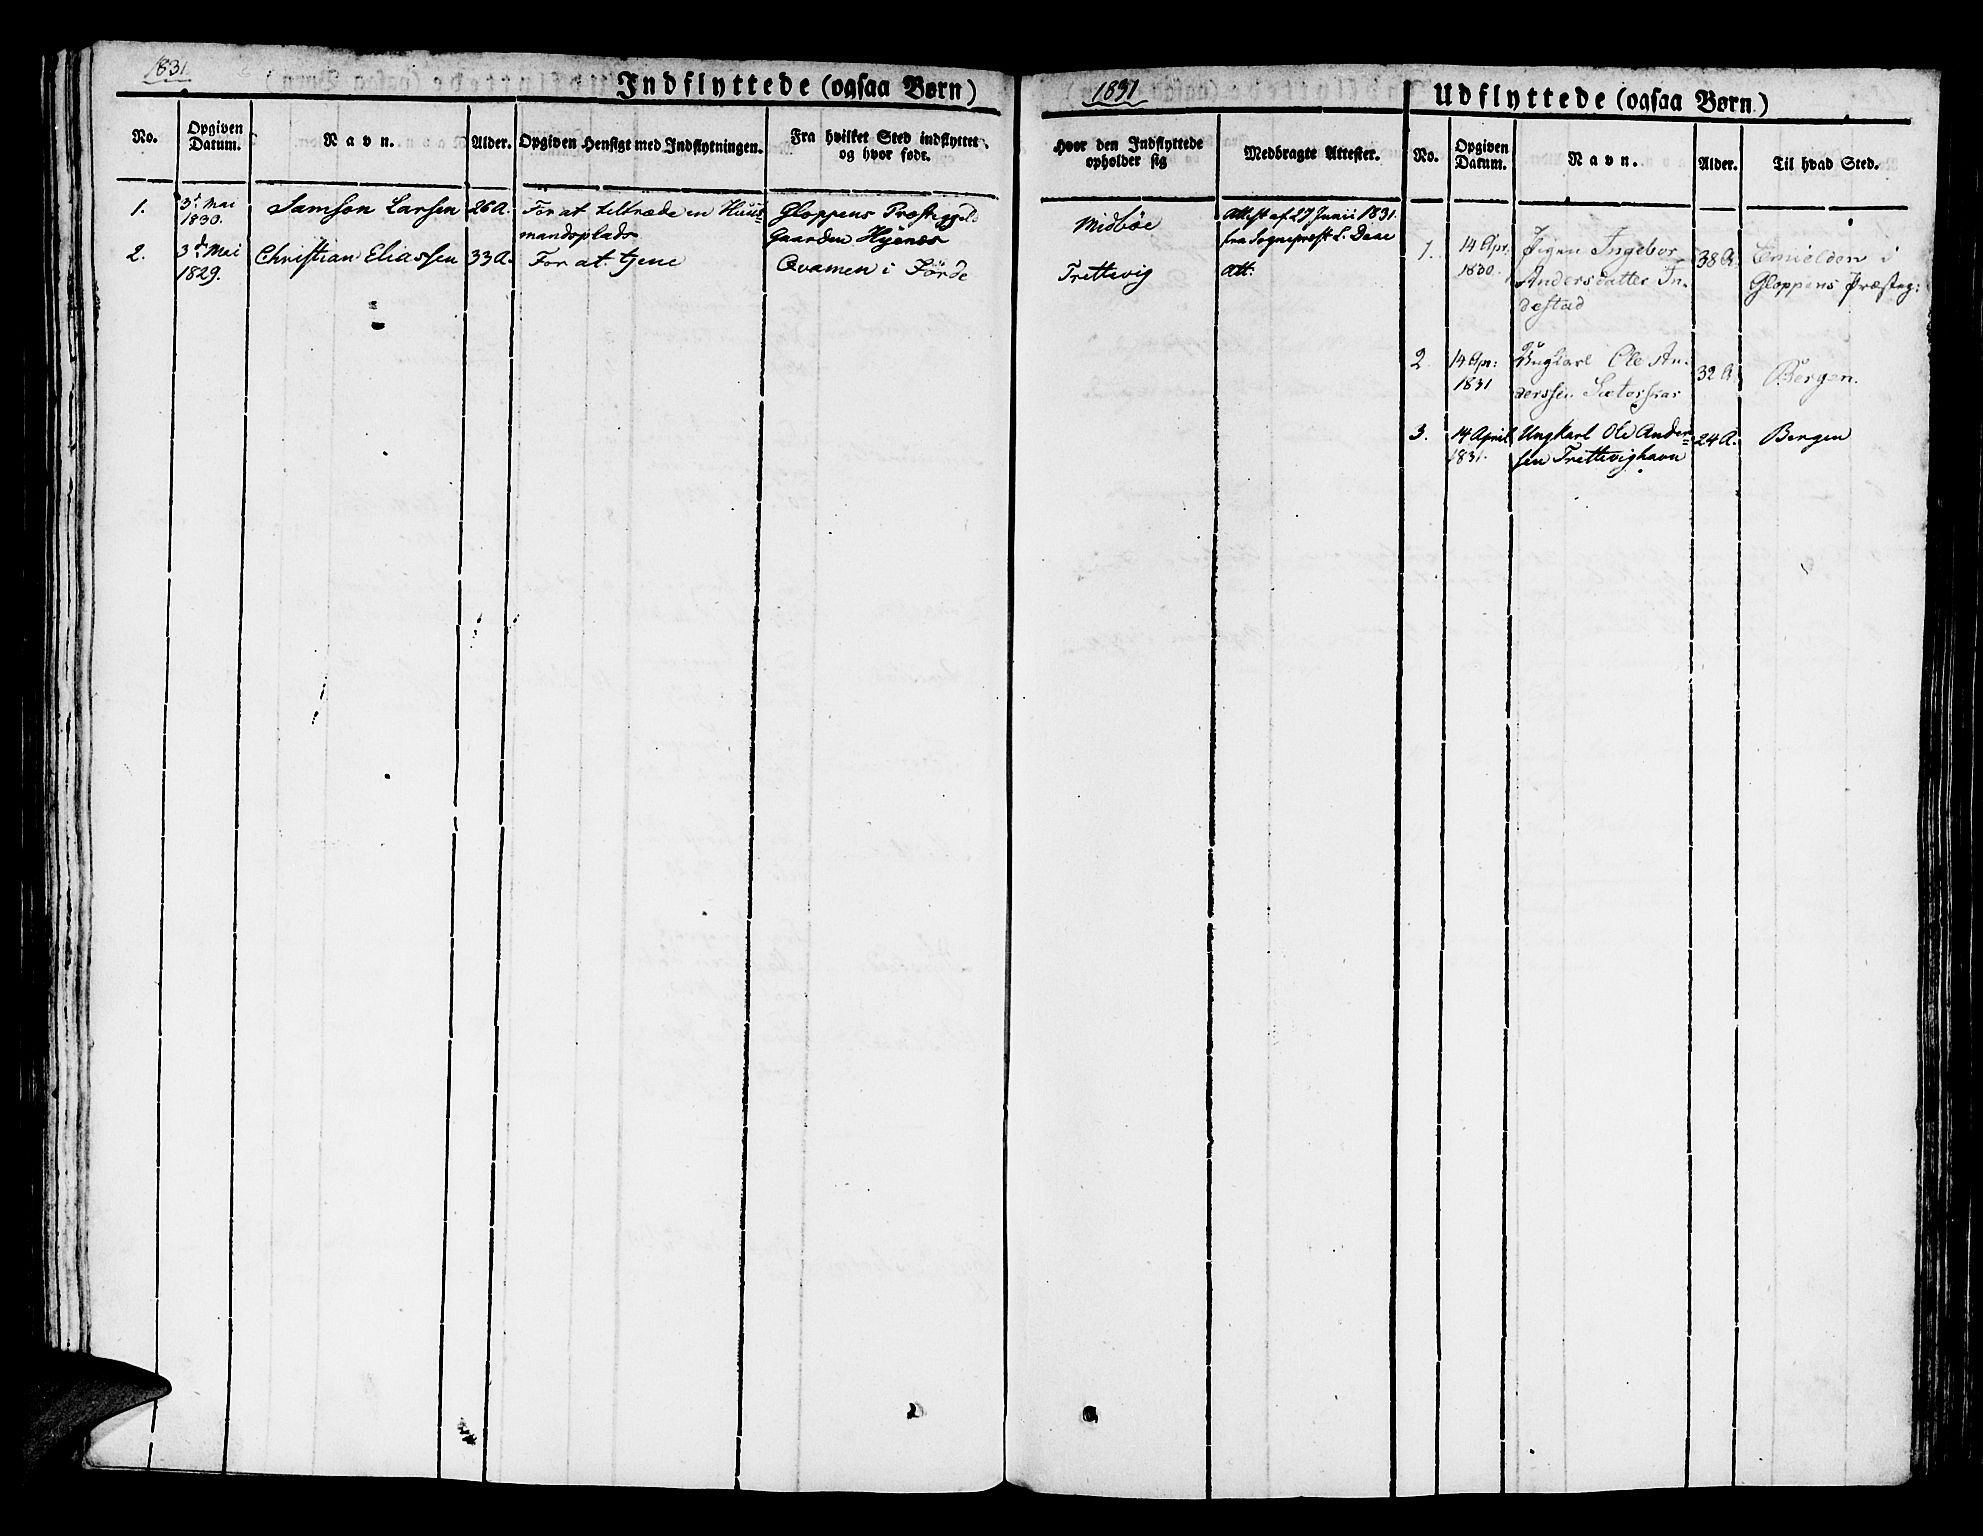 1831
Indflyttede (ogsaa Børn)
No.
Opgiven Datum.
Navn.
Alder.
Opgiven Hensigt med Indflytningen.
Fra hvilket Sted indflyttet og hvor født.
1.
3d Mai
1830.
Samson Larsen
26 A.
For at tiltræde en Huus-
mandsplads
Gloppens Præstegjeld
Gaarden Hyenes
2.
3d Mai
1829.
Christian Eliassen
33 A.
For at tjene
Qvamen i Förde
1831
Hvor den Indflyttede opholder sig
Medbragte Attester.
Midböe
Attest af 27 Junii 1831.
fra Sognepræst L. Daae
Trettevig
Att:
Udflyttede (ogsaa Børn)
No.
Opgiven Datum.
Navn.
Alder.
Til hvad Sted.
1.
14 Apr.
1830.
Pigen Ingebor
Andersdatter In-
destad
38 A.
i
Gloppens Præsteg:
2
14 Apr:
1831
Ungkarl Ole An-
derssen
32 A.
Bergen.
3.
14 April
1831.
Ungkarl Ole Ander-
sen Trettevighavn
24 A.
Bergen